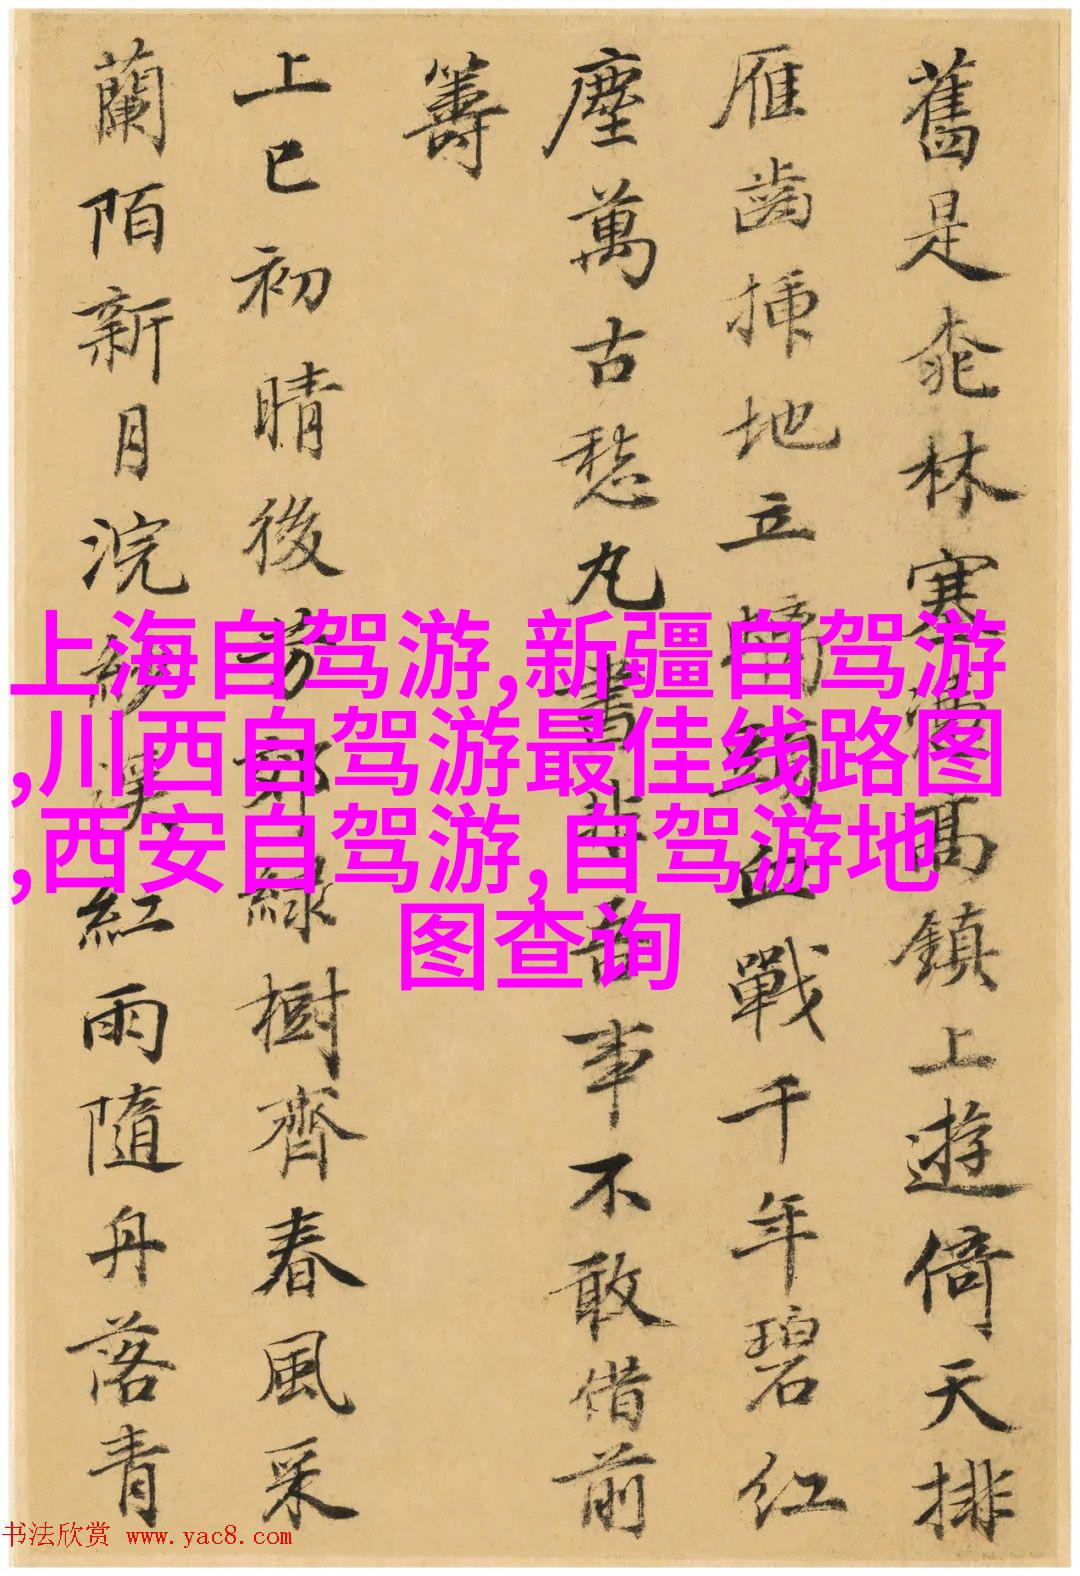 舊是桃林塞高鎮上遊倚天排
雁齒插地立血戰千年碧紅
塵萬古愁丸書昔事不敢借前
籌
上巳初晴後芳郊綠樹齊春風采
蘭陌新月浣紗溪紅雨隨舟落青
上海自驾游,新疆自驾游
,川西自驾游最佳线路图
,西安自驾游,自驾游地
图查询
书法欣赏 www.yac8.com